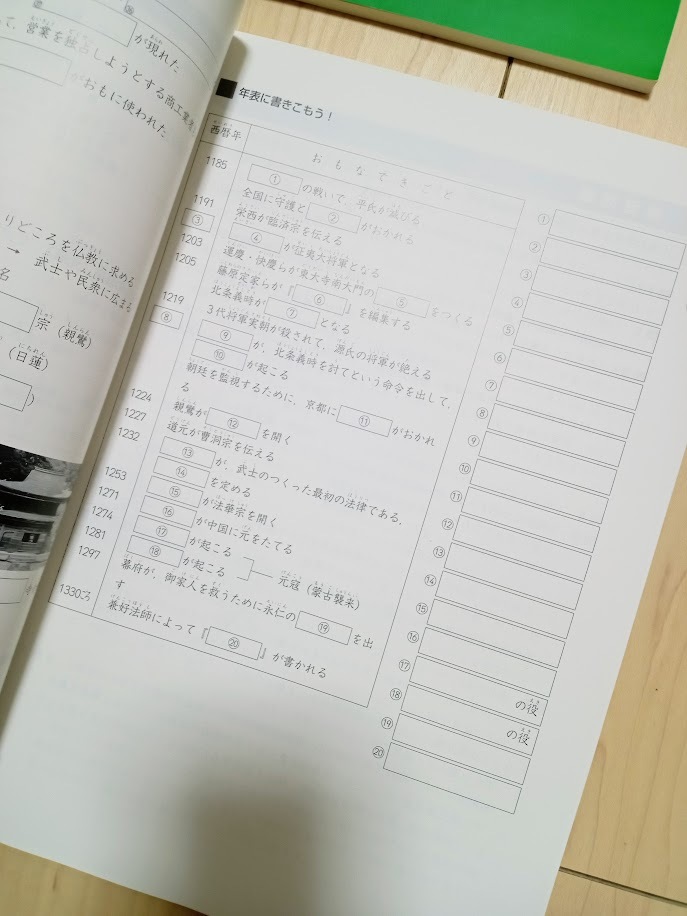 が現れた
て、営業を独占しようとする商工業者
がおもに使われた
りどころを仏教に求める
→ 武士や民衆に広まる
名
宗（親鸞）
（日蓮）
）
年表に書きこもう！
西暦年
おもなできごと
1185
①の戦いで、平氏が滅びる
全国に守護と②がおかれる
1191
栄西が臨済宗を伝える
③
④が征夷大将軍となる
1203
運慶・快慶らが東大寺南大門の⑤をつくる
1205
藤原定家らが『⑥』を編集する
北条義時が⑦となる
1219
3代将軍実朝が殺されて、源氏の将軍が絶える
⑧
⑨が、北条義時を討てという命令を出して、
⑩が起こる
朝廷を監視するために、京都に⑪がおかれ
る
1224
親鸞が⑫を開く
1227
道元が曹洞宗を伝える
1232
⑬が、武士のつくった最初の法律である、
⑭を定める
1253
⑮が法華宗を開く
1271
⑯が中国に元をたてる
1274
⑰が起こる
1281
⑱が起こる
元寇（蒙古襲来）
1297
幕府が、御家人を救うために永仁の⑲を出
す
1330ごろ
兼好法師によって『⑳』が書かれる
①
②
③
④
⑤
⑥
⑦
⑧
⑨
⑩
⑪
⑫
⑬
⑭
⑮
⑯
⑰ の役
⑱ の役
⑲
⑳